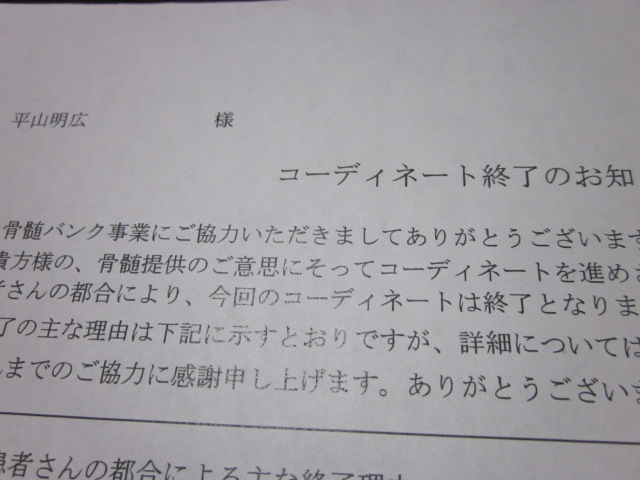 平山明広 様
コーディネート終了のお知
骨髄バンク事業にご協力いただきましてありがとうございます
貴方様の、骨髄提供のご意思にそってコーディネートを進め
者さんの都合により、今回のコーディネートは終了となりま
了の主な理由は下記に示すとおりですが、詳細については
までのご協力に感謝申し上げます。ありがとうございま
患者さんの都合による主な終了理由